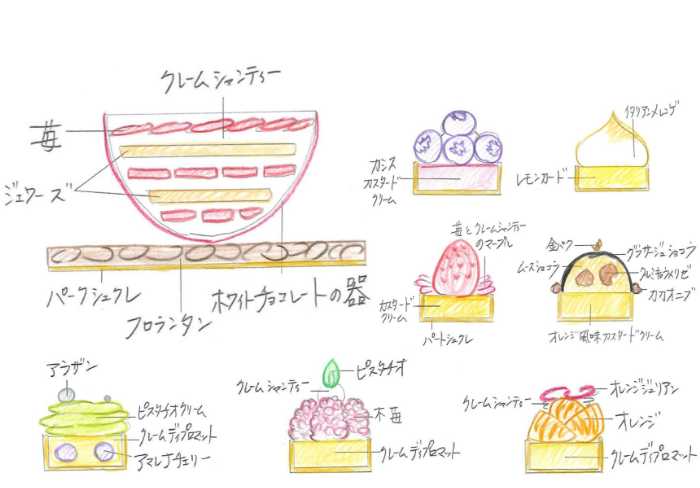 クレームシャンティー
苺
ジェワーズ
パークシュクレ
フロランタン
ホワイトチョコレートの器
カシス
カスタード
クリーム
イタリアンメレンゲ
レモンカード
苺とクレームシャンティー
のマーブル
カスタード
クリーム
パートシュクレ
金パク
ムースショコラ
グラサージュショコラ
カカオニブ
オレンジ風味カスタードクリーム
アラザン
ピスタチオクリーム
クレームディプロマット
アマレナチェリー
クレームシャンティー
ピスタチオ
木苺
クレームディプロマット
クレームシャンティー
オレンジジュリアン
オレンジ
クレームディプロマット